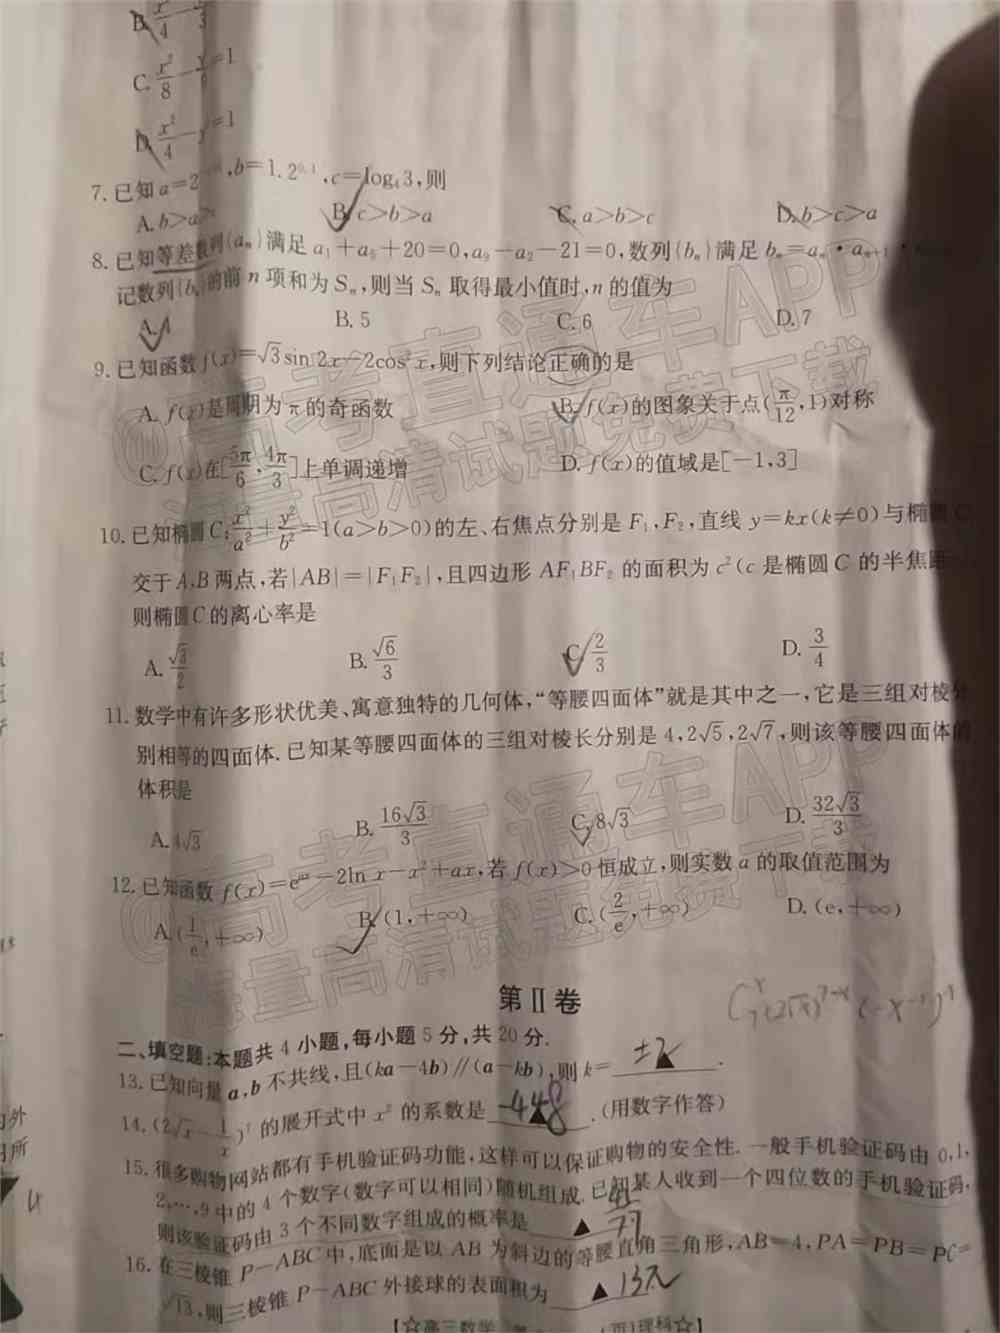 B. x²/4 - /3
C. x²/8 - y/ =1
D. x²/4 - y²=1
7. 已知 a=2 ,b=1.2^0.1,c=log₄3,则
A. b>a> B. c>b>a C. a>b>c D. b>c>a
8. 已知等差数列{aₙ}满足 a₁+a₅+20=0,a₉-a₂-21=0,数列{bₙ}满足 bₙ=aₙ·aₙ₊₁·
记数列{bₙ}的前 n 项和为 Sₙ,则当 Sₙ 取得最小值时,n 的值为
A. 4 B. 5 C. 6 D. 7
9. 已知函数 f(x)=√3sin 2x-2cos²x,则下列结论正确的是
A. f(x)是周期为 π 的奇函数 B. f(x)的图象关于点(π/12,1)对称
C. f(x)在[5π/6,4π/3]上单调递增 D. f(x)的值域是[-1,3]
10. 已知椭圆 C:x²/a²+y²/b²=1(a>b>0)的左、右焦点分别是 F₁,F₂,直线 y=kx(k≠0)与椭圆 C
交于 A,B 两点,若|AB|=|F₁F₂|,且四边形 AF₁BF₂ 的面积为 c²(c 是椭圆 C 的半焦距
则椭圆 C 的离心率是
A. √3/2 B. √6/3 C. 2/3 D. 3/4
11. 数学中有许多形状优美、寓意独特的几何体,“等腰四面体”就是其中之一,它是三组对棱分
别相等的四面体. 已知某等腰四面体的三组对棱长分别是 4,2√5,2√7,则该等腰四面体的
体积是
A. 4√3 B. 16√3/3 C. 8√3 D. 32√3/3
12. 已知函数 f(x)=e^ax-2ln x-x²+ax,若 f(x)>0 恒成立,则实数 a 的取值范围为
A. (1/e,+∞) B. (1,+∞) C. (2/e,+∞) D. (e,+∞)
第Ⅱ卷
二、填空题:本题共 4 小题,每小题 5 分,共 20 分.
13. 已知向量 a,b 不共线,且(ka-4b)∥(a-kb),则 k= ±2 ▲ .
14. (2√x-1/x)⁷ 的展开式中 x² 的系数是 -448 ▲ .(用数字作答)
15. 很多购物网站都有手机验证码功能,这样可以保证购物的安全性. 一般手机验证码由 0,1,
2,…,9 中的 4 个数字(数字可以相同)随机组成. 已知某人收到一个四位数的手机验证码,
则该验证码由 3 个不同数字组成的概率是 ▲
16. 在三棱锥 P-ABC 中,底面是以 AB 为斜边的等腰直角三角形,AB=4,PA=PB=PC=
√13,则三棱锥 P-ABC 外接球的表面积为 ▲ 13π
【☆高三数学 页)理科☆】
@高考直通车APP
海量高清试题免费下载
@高考直通车APP
海量高清试题免费下载